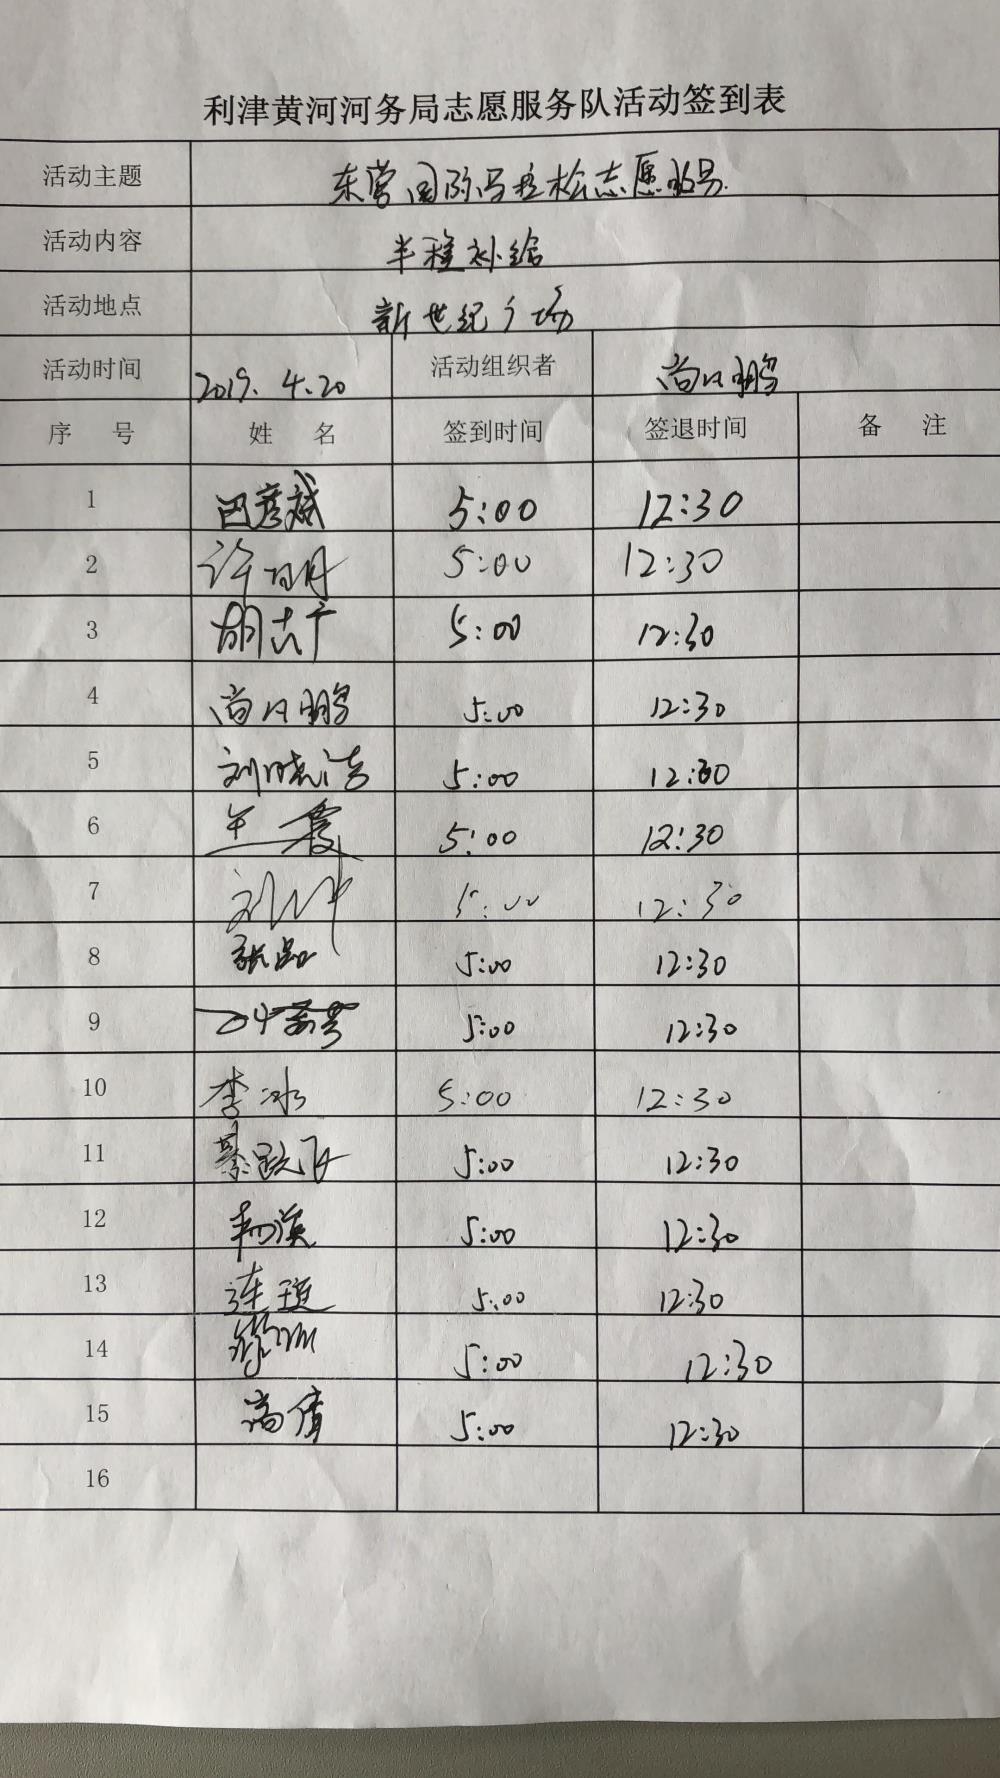 利津黄河河务局志愿服务队活动签到表
活动主题 东营国际马拉松志愿服务
活动内容 半程补给
活动地点 新世纪广场
活动时间 2019.4.20 活动组织者 尚日鹏
序 号 姓 名 签到时间 签退时间 备 注
1 巴彦斌 5:00 12:30
2 许明月 5:00 12:30
3 胡吉广 5:00 12:30
4 尚日鹏 5:00 12:30
5 刘晓洁 5:00 12:30
6 王 5:00 12:30
7 刘 5:00 12:30
8 张 5:00 12:30
9 5:00 12:30
10 李冰 5:00 12:30
11 綦跃飞 5:00 12:30
12 5:00 12:30
13 连 5:00 12:30
14 5:00 12:30
15 高倩 5:00 12:30
16